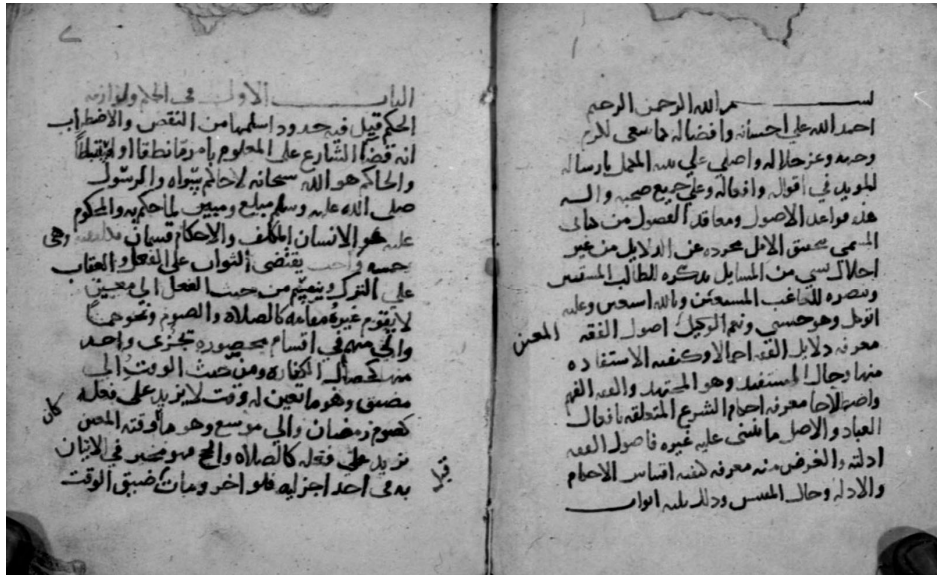 بسم الله الرحمن الرحيم
احمد الله علي احسانه وافضاله كما ينبغي لكرم
وجهه وعز جلاله واصلي علي نبيه المكمل بارساله
المويد في اقواله وافعاله وعلي جميع صحبه واله
هذه قواعد الاصول ومعاقد الفصول من كتابي
المسمي بتحقيق الامل مجرده عن الدلايل من غير
اخلال بشي من المسايل تذكره للطالب المستبين
وتبصره للراغب المستعين وبالله استعين وعليه
اتوكل وهو حسبي ونعم الوكيل اصول الفقه
المعين
معرفه دلايل الفقه اجمالا وكيفيه الاستفاده
منها وحال المستفيد وهو المجتهد والفقه الفهم
واصطلاحا معرفه احكام الشرع المتعلقه بافعال
العباد والاصل ما ينبني عليه غيره فاصول الفقه
ادلته والغرض منه معرفه كيفيه اقتباس الاحكام
والادله وحال المقتبس وذلك ثلثه ابواب
الباب الاول في الحكم ولوازمه
الحكم قيل فيه حدود اسلمها من النقص والاضطراب
انه قضا الشارع علي المعلوم بامر ما نطقا او استنباطا
والحاكم هو الله سبحانه لا حاكم سواه والرسول
صلى الله عليه وسلم مبلغ ومبين لما حكم به والمحكوم
عليه هو الانسان المكلف والاحكام قسمان تكليفيه وهي
خمسه واجب يقتضي الثواب على الفعل والعقاب
على الترك وينقسم من حيث الفعل الى معين
لا يقوم غيره مقامه كالصلاه والصوم ونحوهما
والى مبهم في اقسام محصوره تجزي واحد
منها كخصال الكفاره ومن حيث الوقت الى
مضيق وهو ما تعين له وقت لا يزيد على فعله
كصوم رمضان والى موسع وهو ما وقته المعين
كان
يزيد على فعله كالصلاه والحج فهو مخير في الاتيان
به في احد اجزايه فلو اخر ومات ضيق الوقت
قبل